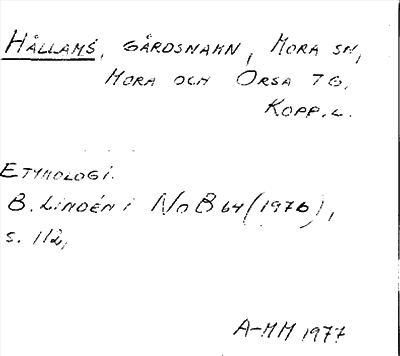 HÅLLAMS, GÅRDSNAMN, MORA SN,
MORA OCH ORSA TG.
KOPP.L.
ETYMOLOGI.
B. LINDÉN i NoB 64 (1976),
s. 112,
A-MM 1977